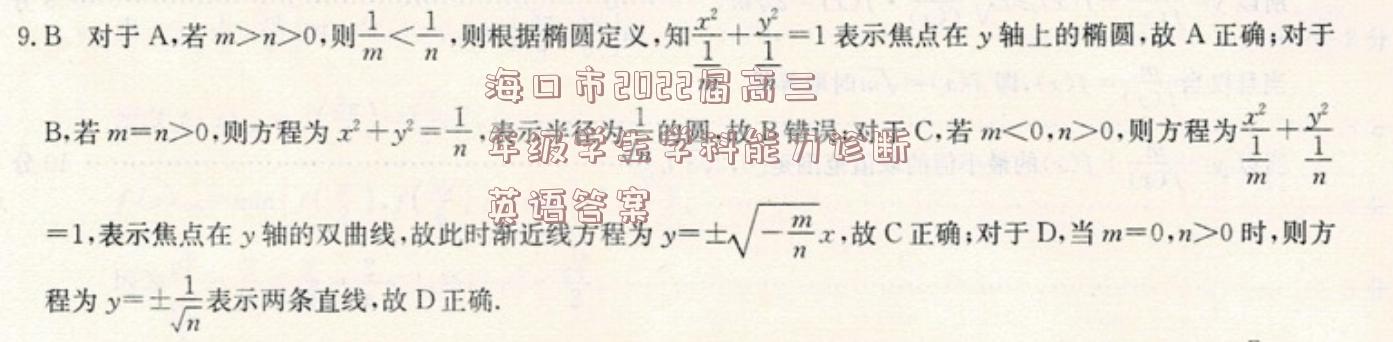 9. B 对于 A,若 m>n>0,则 1/m < 1/n,则根据椭圆定义,知 x²/(1/m) + y²/(1/n) =1 表示焦点在 y 轴上的椭圆,故 A 正确;对于
B,若 m=n>0,则方程为 x²+y²= 1/n,表示半径为 1/√n 的圆,故 B 错误;对于 C,若 m<0,n>0,则方程为 x²/(1/m) + y²/(1/n)
=1,表示焦点在 y 轴的双曲线,故此时渐近线方程为 y=±√(-m/n) x,故 C 正确;对于 D,当 m=0,n>0 时,则方
程为 y=± 1/√n 表示两条直线,故 D 正确.
海口市2022届高三
年级学生学科能力诊断
英语答案